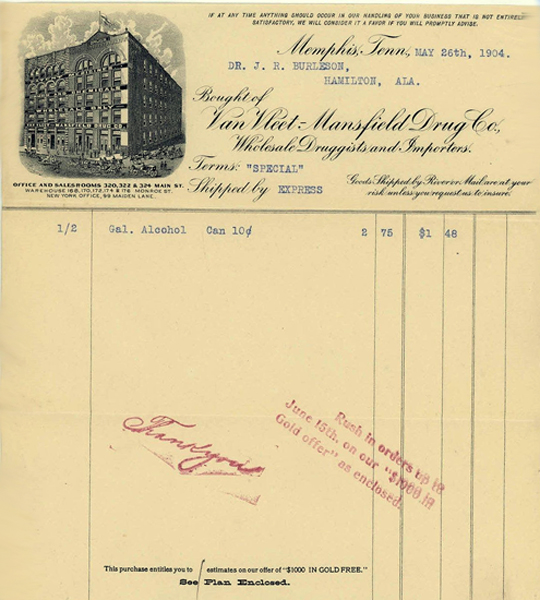 IF AT ANY TIME ANYTHING SHOULD OCCUR IN OUR HANDLING OF YOUR BUSINESS THAT IS NOT ENTIRELY
SATISFACTORY, WE WILL CONSIDER IT A FAVOR IF YOU WILL PROMPTLY ADVISE.
Memphis, Tenn., MAY 26th, 1904.
DR. J. R. BURLESON,
HAMILTON, ALA.
Bought of
Van Vleet-Mansfield Drug Co.,
Wholesale Druggists and Importers.
Terms: "SPECIAL"
Shipped by EXPRESS
Goods Shipped by River or Mail are at your
risk unless you request us to insure.
OFFICE AND SALESROOMS 320, 322 & 324 MAIN ST.
WAREHOUSE 168, 170, 172, 174 & 176 MONROE ST.
NEW YORK OFFICE, 99 MAIDEN LANE.
1/2 Gal. Alcohol Can 10¢ 2 75 $1 48
Thank you
Rush in orders up to
June 15th. on our "$1000 in
Gold offer" as enclosed.
This purchase entitles you to 1 estimates on our offer of "$1000 IN GOLD FREE."
See Plan Enclosed.